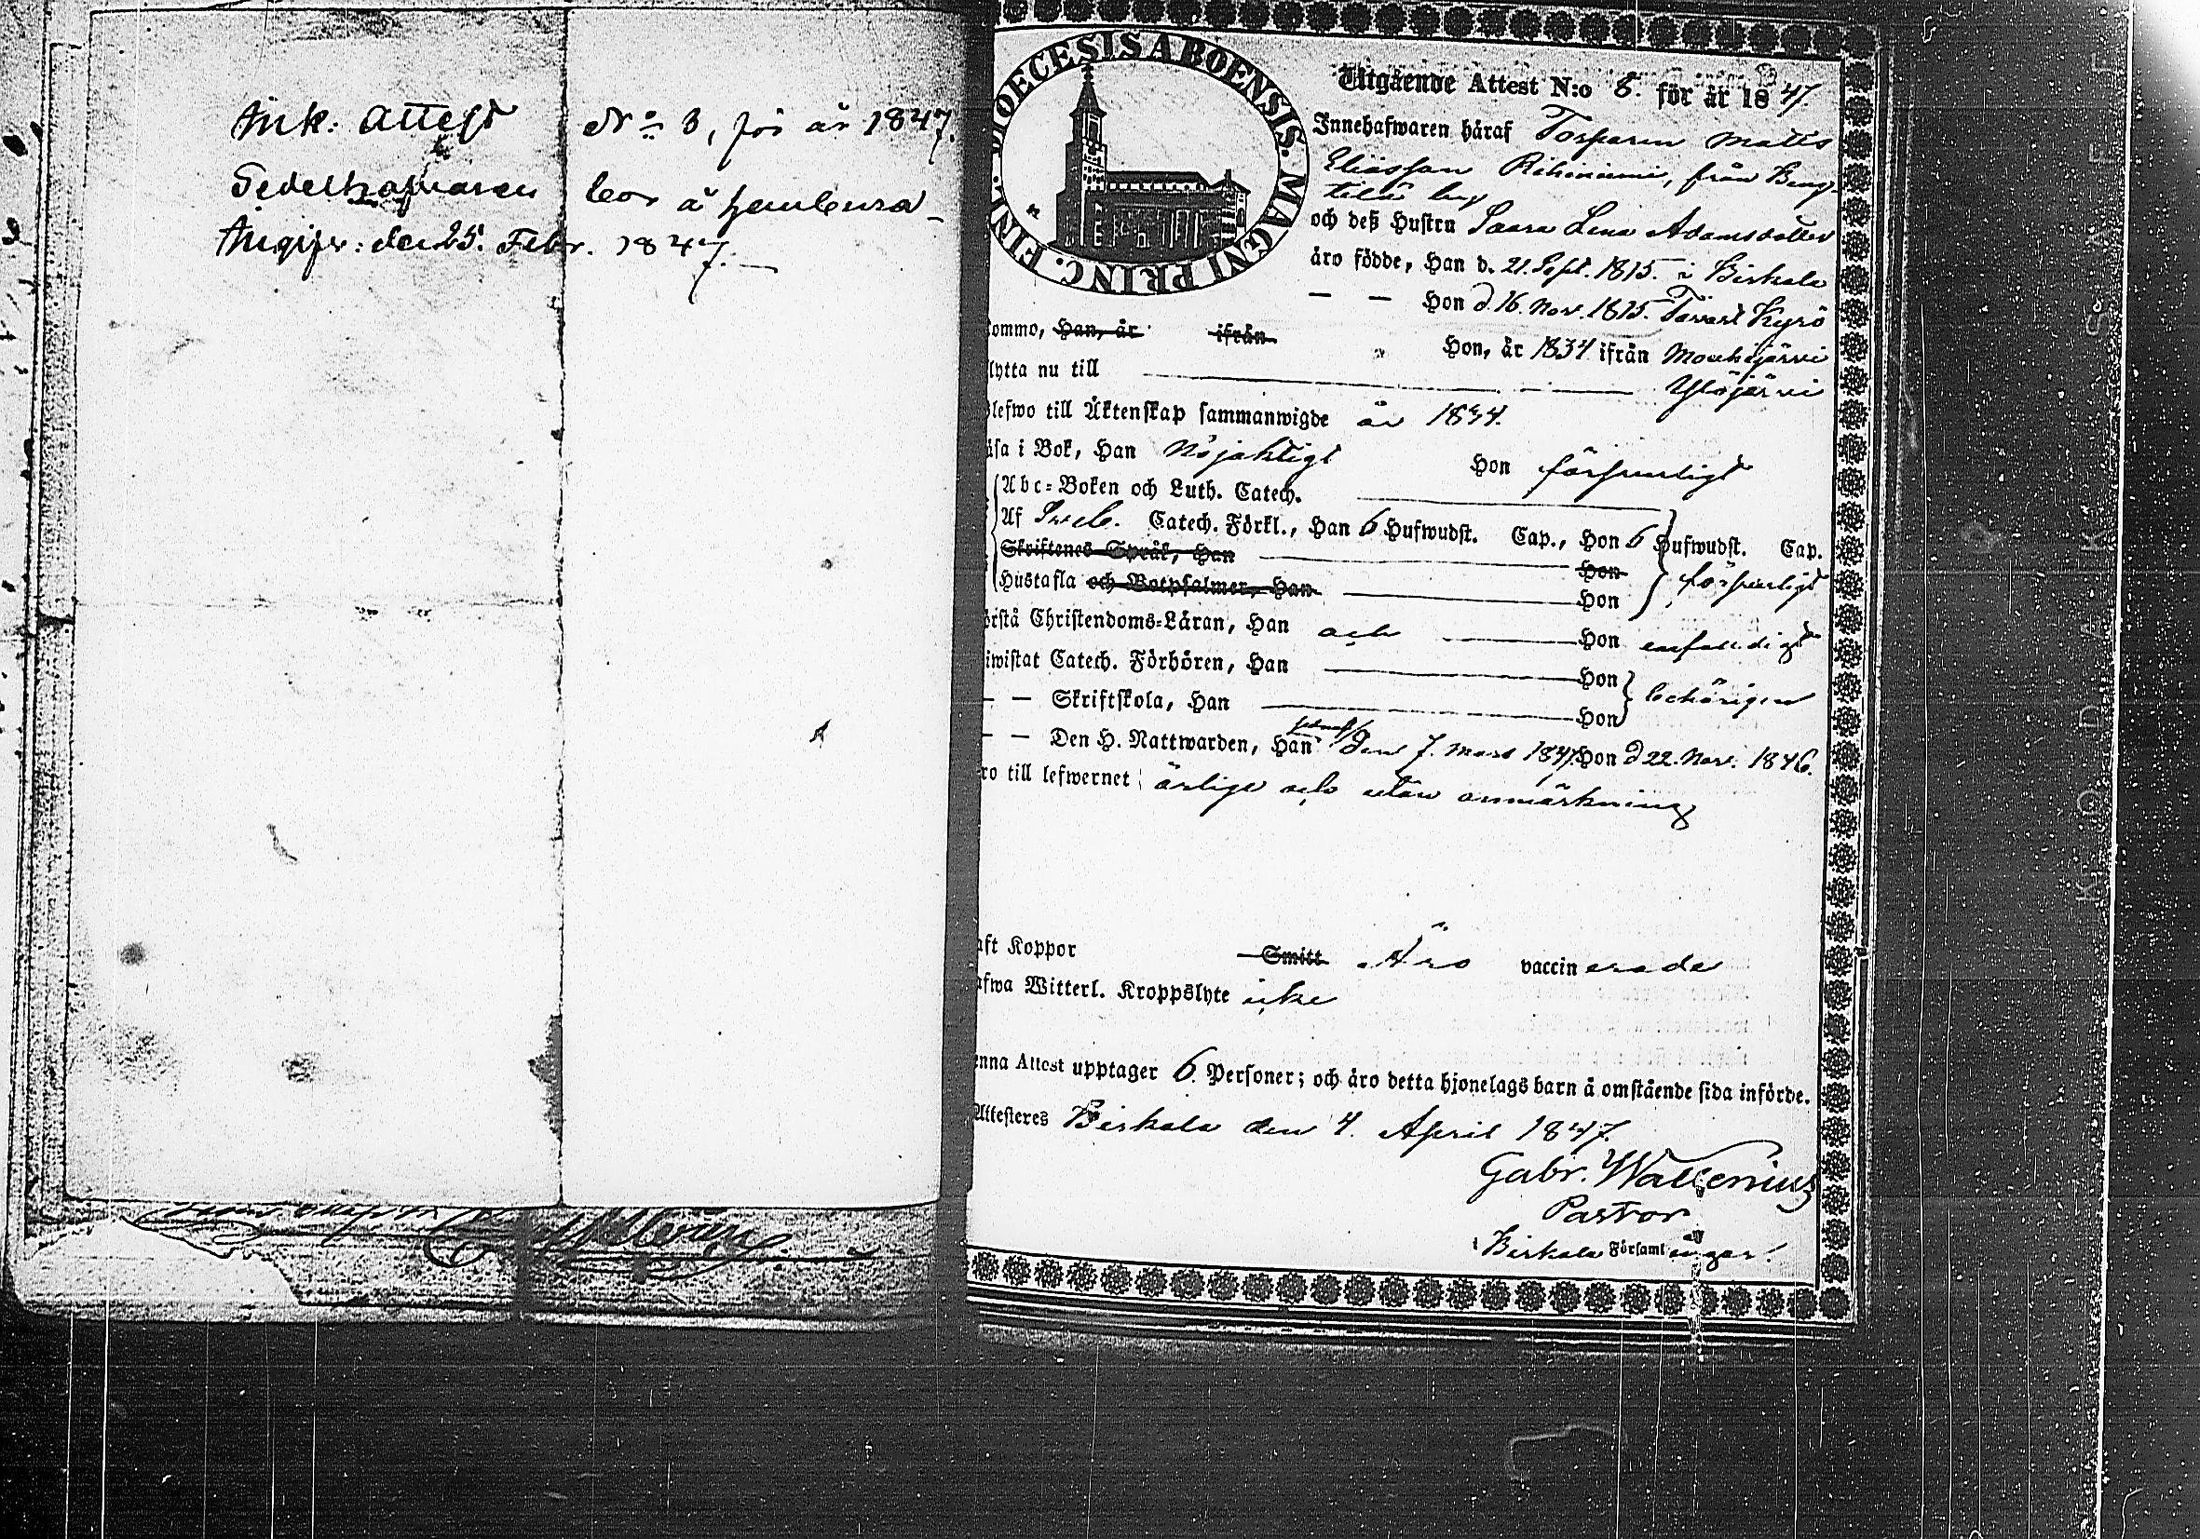 Ank: Attest No 3, för år 1847.
Sedelhafvaren bor å
Angifv: den 25. Febr. 1847.
DIOECESIS ABOENSIS. MAGNI PRINC. FINL.
Utgående Attest N:o 8. för år 1847.
Innehafwaren häraf Torparen Matts
Eliasson Rihiniemi, från Beng-
tilä by
och deß Hustru Saara Lena Adamsdotter
äro födde, Han d. 21. Sept. 1815. i Birkala
— — Hon d. 16. Nov. 1815. Tavast Kyrö
kommo, Han, år ifrån Hon, år 1834 ifrån Mouhijärvi
flytta nu till Ylöjärvi
Blefwo till Äktenskap sammanwigde år 1834.
läsa i Bok, Han Nöjaktigt Hon försvarligt
Abc-Boken och Luth. Catech.
Af Catech. Förkl., Han 6 Hufwudst. Cap., Hon 6 Hufwudst. Cap.
Skriftenes Språk, Han Hon
Hustafla och Botpsalmer, Han Hon försvarligt
förstå Christendoms-Läran, Han och Hon enfaldigt
biwistat Catech. Förhören, Han Hon
— — Skriftskola, Han Hon behörigen
— — Den H. Nattwarden, Han den 7. Mars 1847. Hon d. 22. Nov. 1846.
äro till lefwernet ärlige och utan anmärkning
haft Koppor Smitt Äro vaccinerade
hafwa Witterl. Kroppslyte icke
Denna Attest upptager 6. Personer; och äro detta hjonelags barn å omstående sida införde.
Attesteres Birkala den 4. April 1847.
Gabr. Wallenius
Pastor
i Birkala Församlingar.
KODAK SAFE